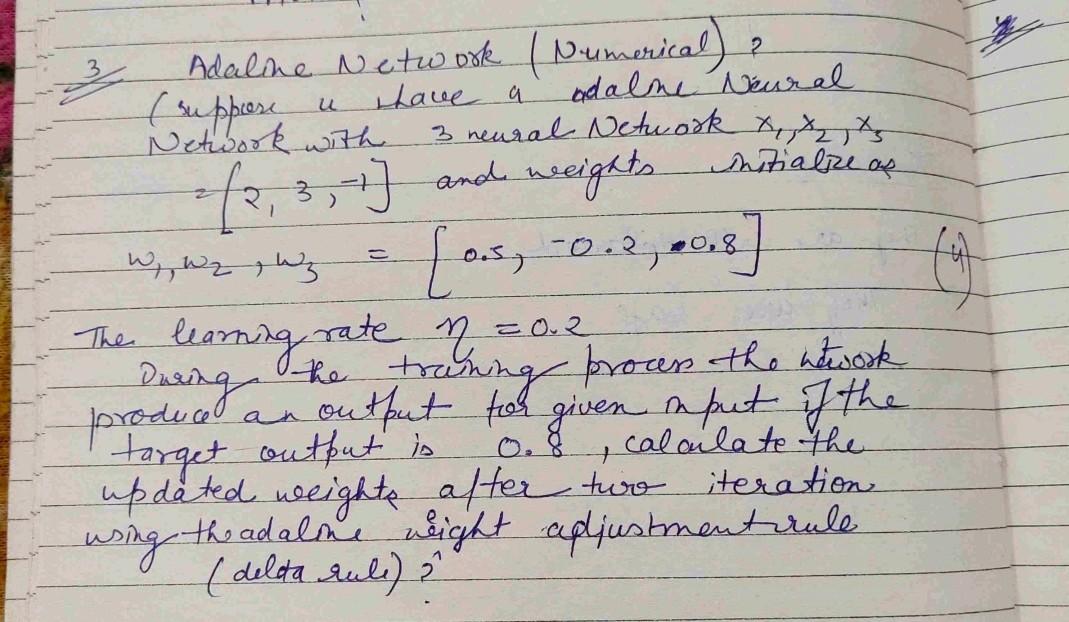 3 Adaline Network (Numerical) ?
(suppose u have a adaline Neural
Network with 3 neural Network x₁, x₂, x₃
= [2, 3, -1] and weights initialize as
w₁, w₂, w₃ = [0.5, -0.2, 0.8] (4)
The learning rate η = 0.2
During the training process the network
produced an output for given input if the
target output is 0.8, calculate the
updated weights after two iteration
using the adaline weight adjustment rule
(delta rule) ?